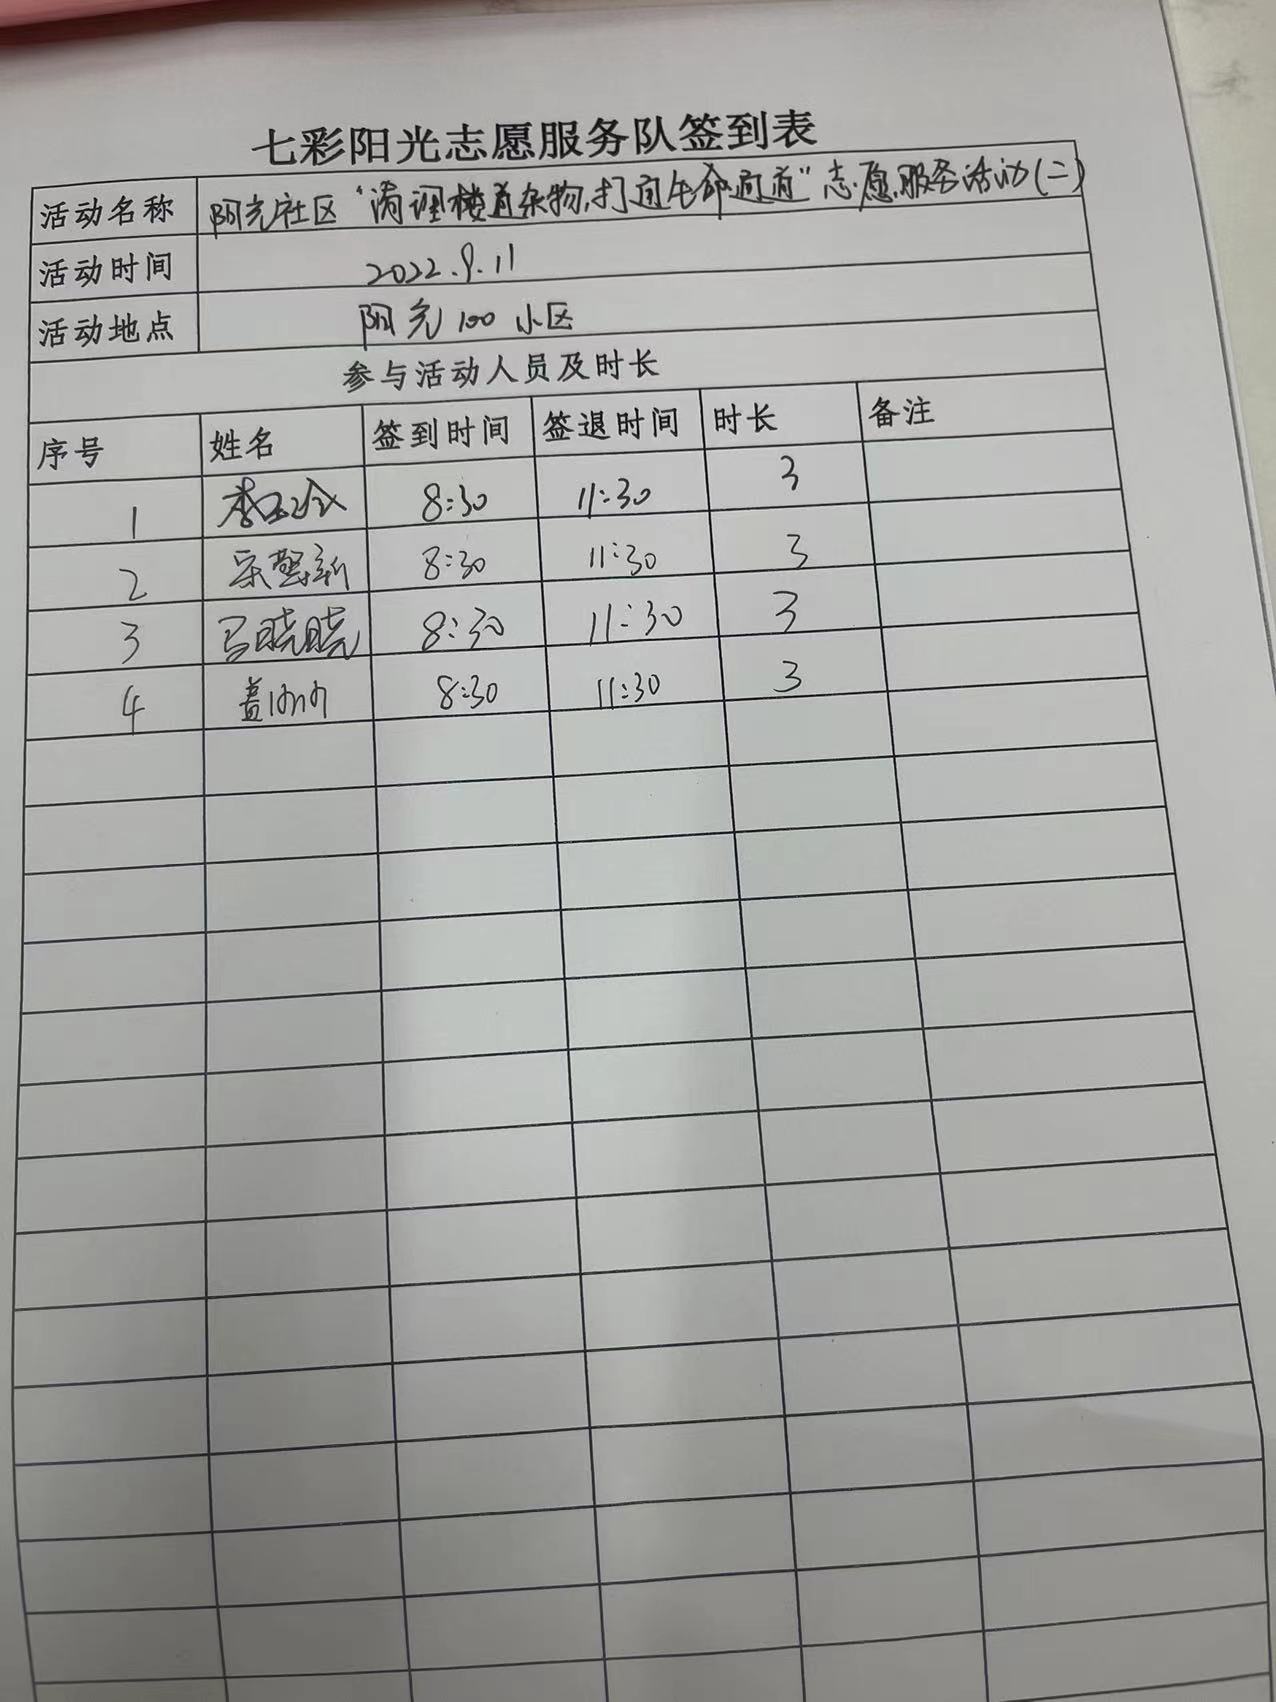 七彩阳光志愿服务队签到表
活动名称 阳光社区“清理楼道杂物,打通生命通道”志愿服务活动(二)
活动时间 2022.9.11
活动地点 阳光100小区
参与活动人员及时长
序号 姓名 签到时间 签退时间 时长 备注
1 李玉玲 8:30 11:30 3
2 8:30 11:30 3
3 马晓晓 8:30 11:30 3
4 盖 8:30 11:30 3